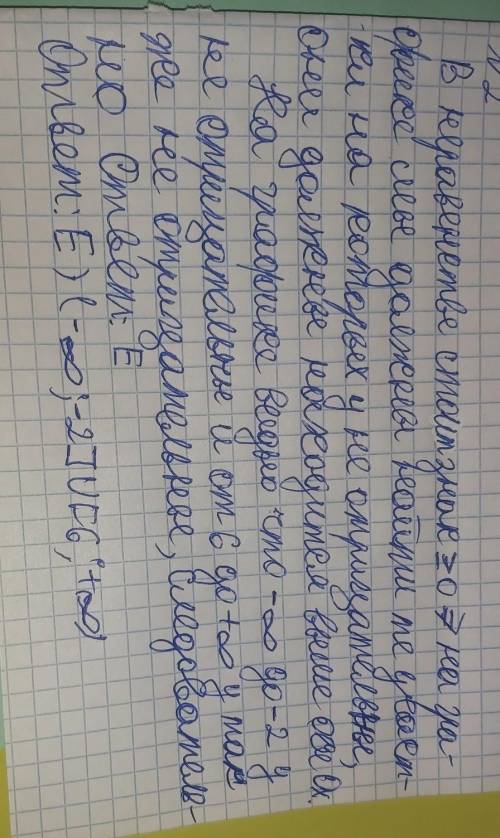 №2
В неравенстве стоит знак ≥0 ⇒ на гра-
фике мы должны найти те участ-
ки на которых y не отрицательные,
они должны находится выше оси ox
На графике видно что -∞ до -2 y
не отрицательные и от 6 до +∞ y так
же не отрицательные, следователь-
но Ответ: E
Ответ: E) (-∞;-2]∪[6;+∞)